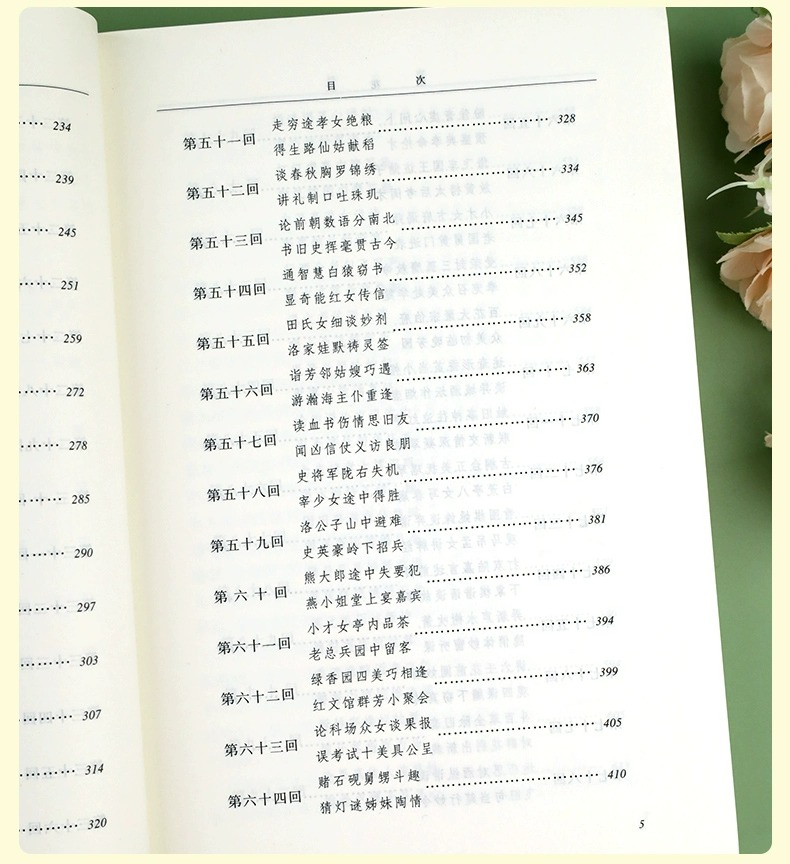 234
239
245
251
259
272
278
285
290
297
303
307
314
320
目 次
第五十一回 走穷途孝女绝粮 328
得生路仙姑献稻
第五十二回 谈春秋胸罗锦绣 334
讲礼制口吐珠玑
第五十三回 论前朝数语分南北 345
书旧史挥毫贯古今
第五十四回 通智慧白猿窃书 352
显奇能红女传信
第五十五回 田氏女细谈妙剂 358
洛家娃默祷灵签
第五十六回 诣芳邻姑嫂巧遇 363
游瀚海主仆重逢
第五十七回 读血书伤情思旧友 370
闻凶信仗义访良朋
第五十八回 史将军陇右失机 376
宰少女途中得胜
第五十九回 洛公子山中避难 381
史英豪岭下招兵
第 六 十 回 熊大郎途中失要犯 386
燕小姐堂上宴嘉宾
第六十一回 小才女亭内品茶 394
老总兵园中留客
第六十二回 绿香园四美巧相逢 399
红文馆群芳小聚会
第六十三回 论科场众女谈果报 405
误考试十美具公呈
第六十四回 赌石砚舅甥斗趣 410
猜灯谜姊妹陶情
5